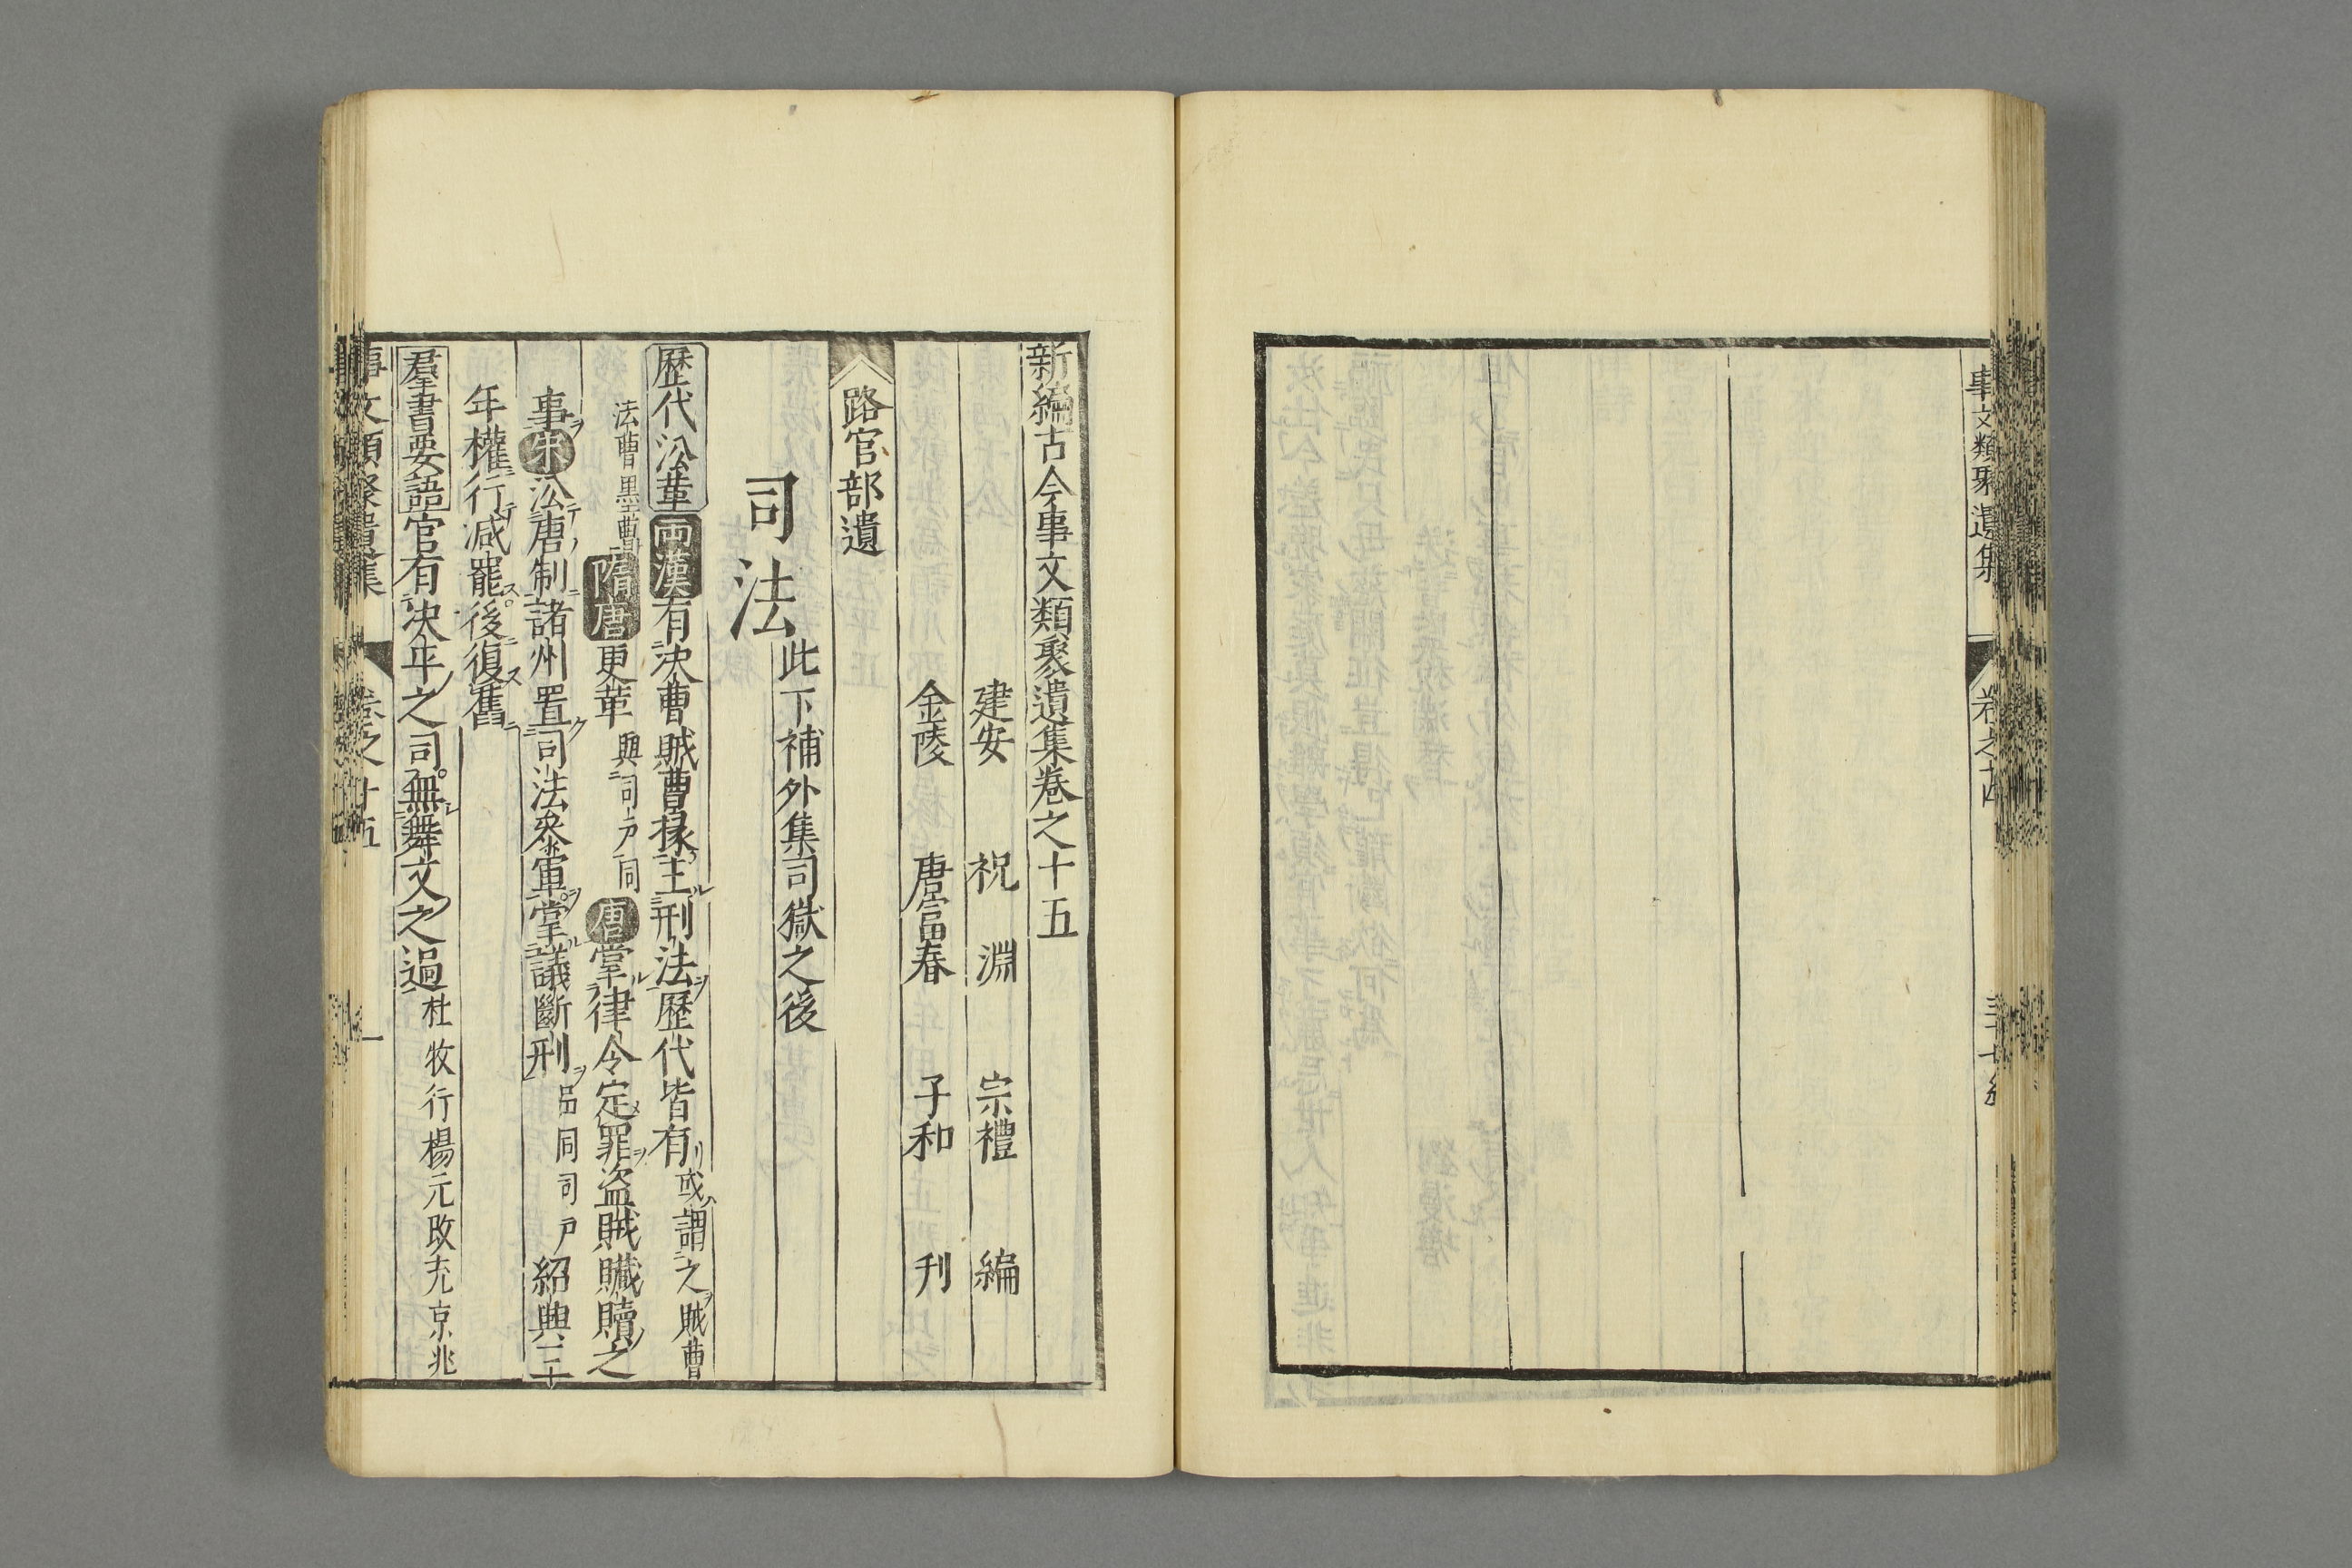 事文類聚遺集 卷之十四
新編古今事文類聚遺集卷之十五
建安 祝 淵 宗禮 編
金陵 唐富春 子和 刋
路官部遺
司法 此下補外集司獄之後
歷代㳂革 兩漢 有決曹賊曹掾主刑法歷代皆有 或謂之賊曹
法曹墨曹 隋唐 更革 與司户同 唐 掌律令定罪盗賊贓贖之
事 宋 㳂唐制諸州置司法叅軍掌議斷刑 品同司戸 紹興三十
年權行减罷後復舊
羣書要語 官有决平之司無舞文之過 杜牧行楊元改充京兆
事文類聚遺集 卷之十五 一